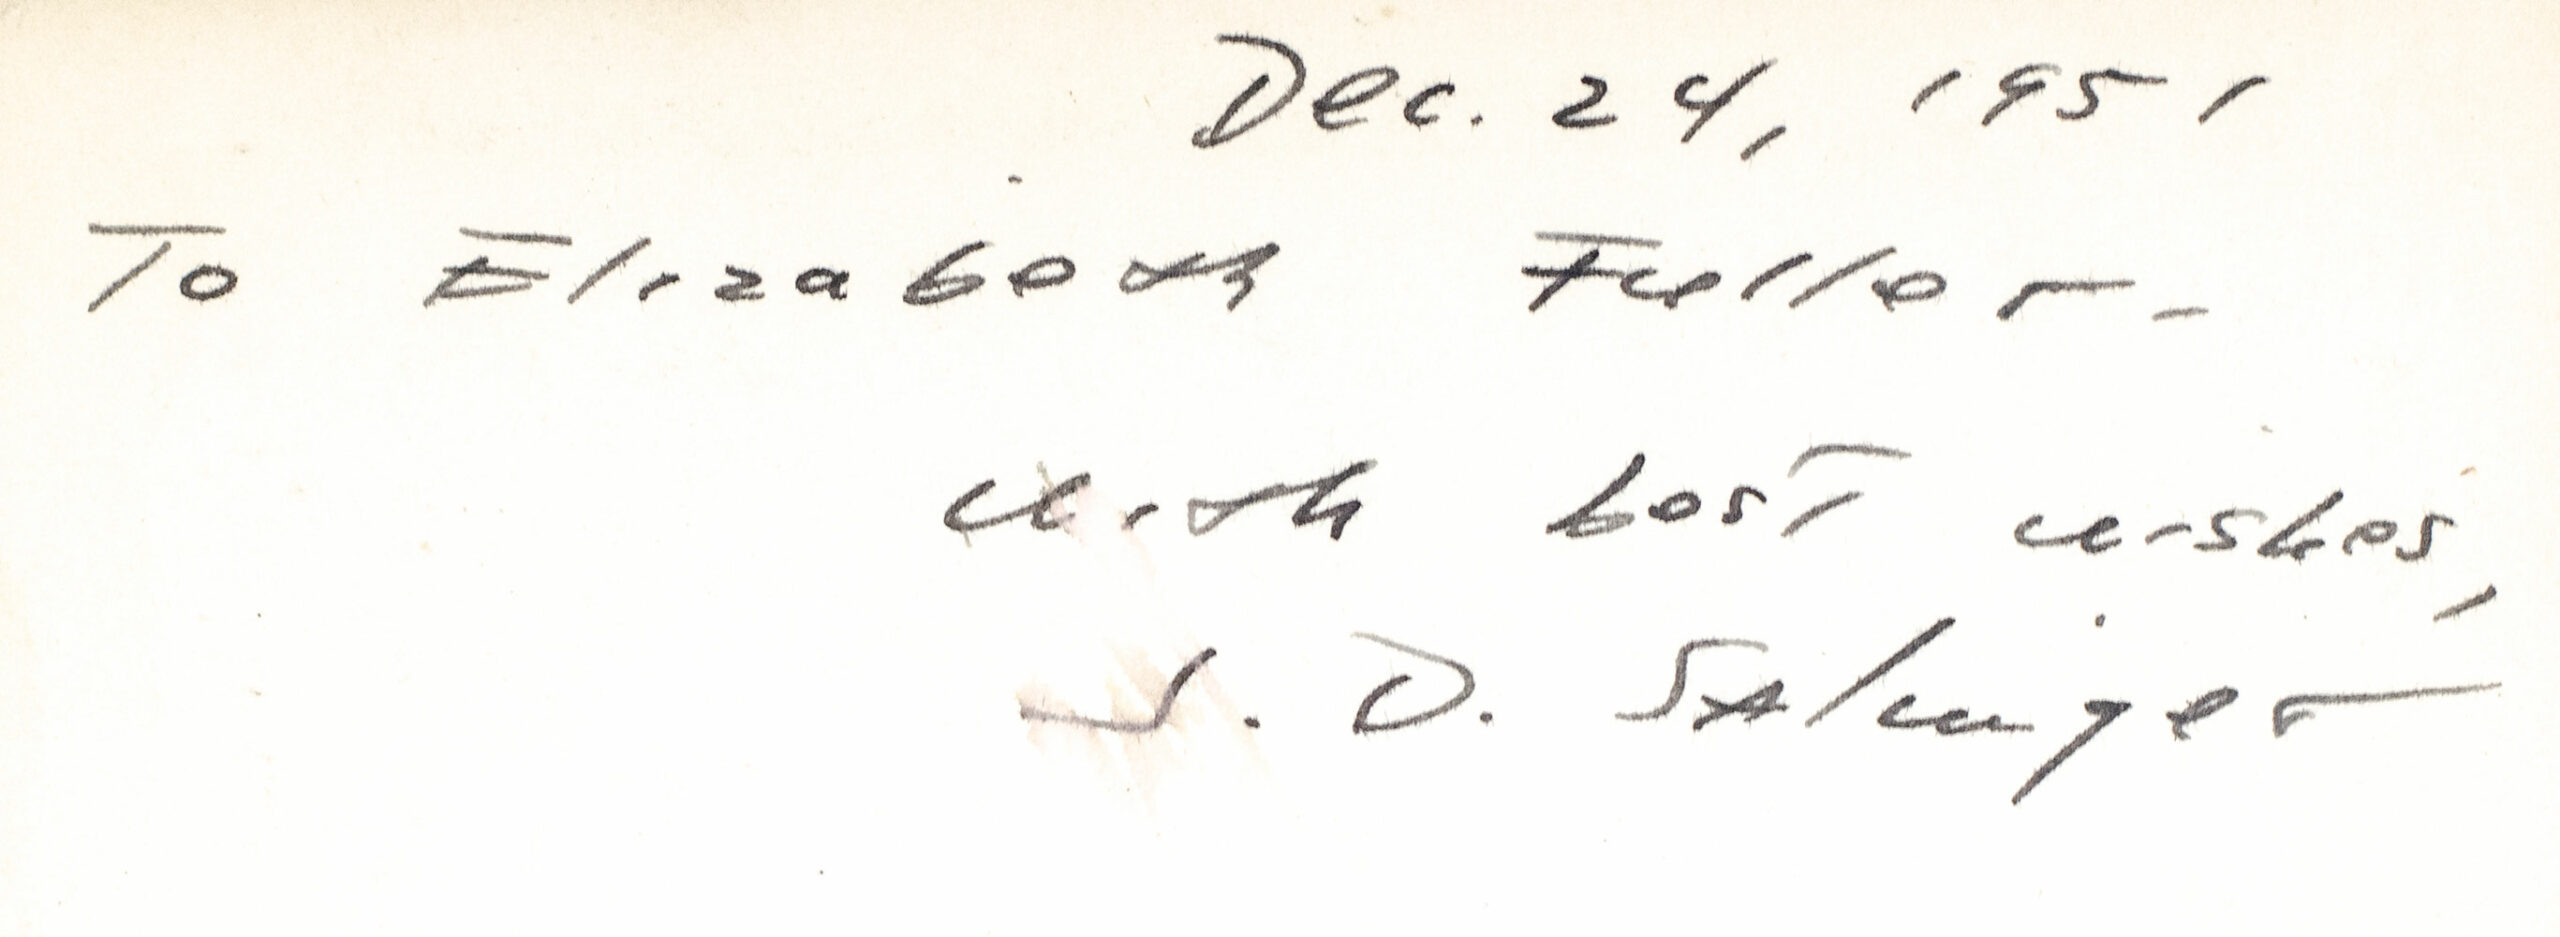 Dec. 24, 1951
To Elizabeth Fuller -
with best wishes,
J. D. Salinger